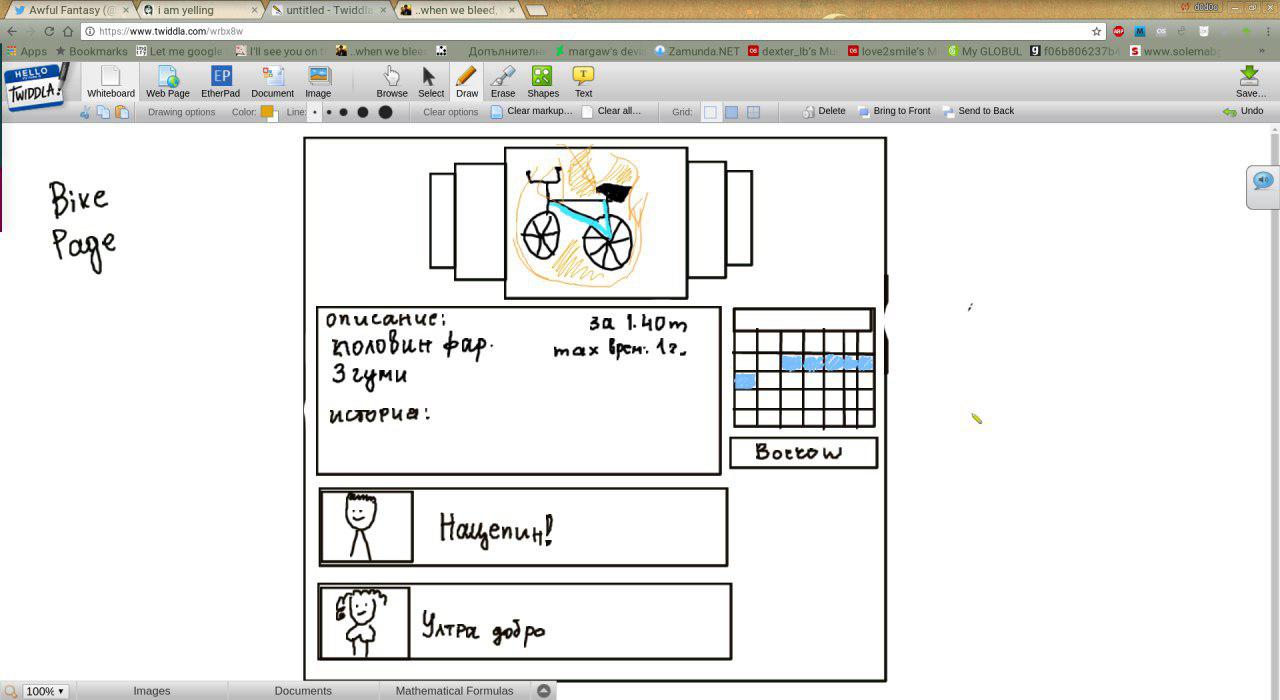 Awful Fantasy (@
i am yelling
untitled - Twiddla
..when we bleed,
dodoo
https://www.twiddla.com/wrbx8w
Apps
Bookmarks
Let me google
I'll see you on t
..when we blee
Допълнителн
margaw's devi
Zamunda.NET
dexter_lb's Mu
love2smile's M
My GLOBUL
f06b806237b4
www.solemab
HELLO
TWIDDLA!
Whiteboard
Web Page
EP
EtherPad
Document
Image
Browse
Select
Draw
Erase
Shapes
T
Text
Save...
Drawing options
Color:
Line:
Clear options
Clear markup...
Clear all...
Grid:
Delete
Bring to Front
Send to Back
Undo
Bike
Page
описание:
за 1.40m
половин фар.
max врем: 1г.
3 гуми
история:
Borrow
Нацепин!
Ултра добро
100%
Images
Documents
Mathematical Formulas